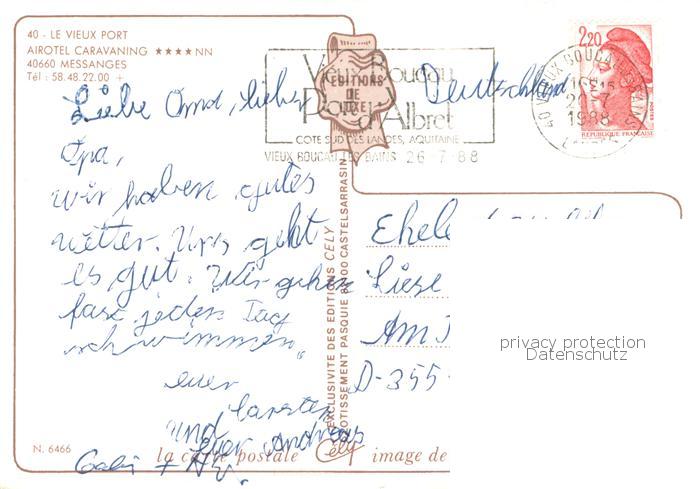 40 - LE VIEUX PORT
AIROTEL CARAVANING ★★★★NN
40660 MESSANGES
Tél : 58.48.22.00 +
Liebe Oma, lieber
Opa,
wir haben gutes
wetter. Uns geht
es gut. Wir gehen
fast jeden Tag
schwimmen.
euer
Carsten
und
Euer Andreas
Gabi +
N. 6466
la carte postale Cély image de
EDITIONS
DE
LUXE
EXCLUSIVITE DES EDITIONS CELY
LOTISSEMENT PASQUIE 82100 CASTELSARRASIN
Vieux Boucau
Port d'Albret
COTE SUD DES LANDES, AQUITAINE
VIEUX BOUCAU LES BAINS 26-7-88
40 VIEUX BOUCAU LES BAINS
26-7
1988
LANDES
2,20
POSTES
REPUBLIQUE FRANÇAISE
Deutschland
Ehel
Liese
Am
D-355
privacy protection
Datenschutz